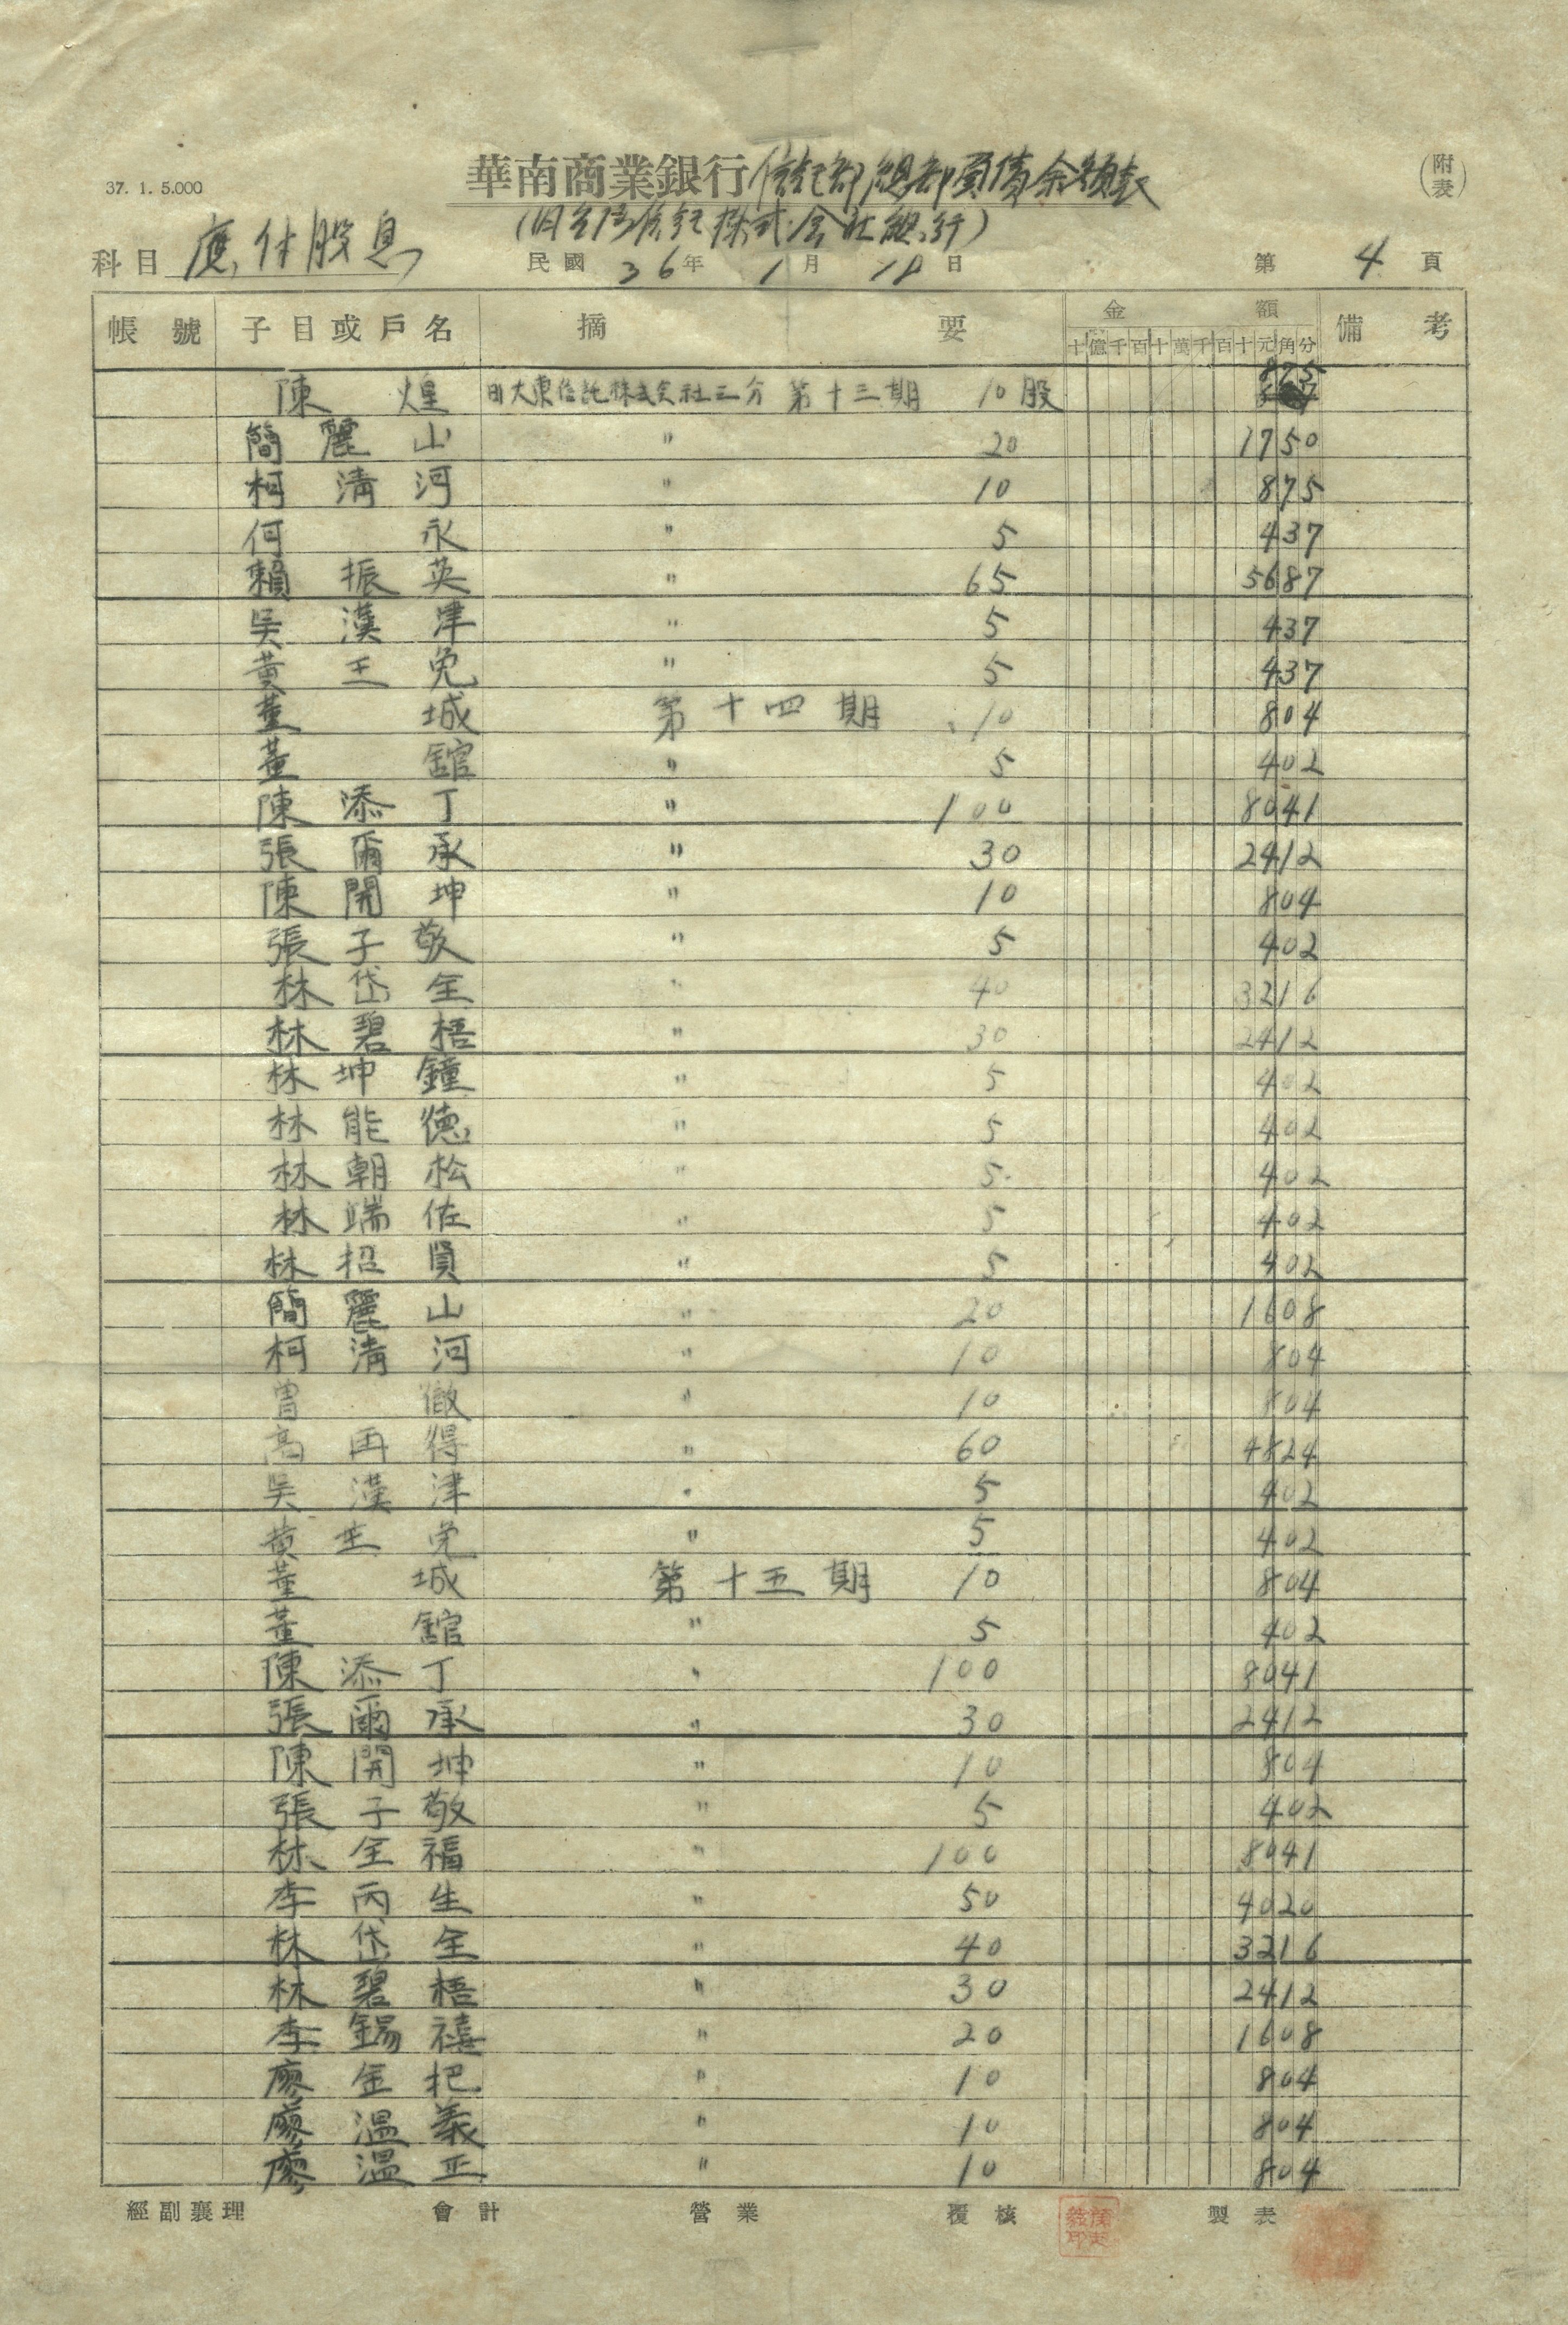 37. 1. 5.000
華南商業銀行信託部總部負債余額表
(附表)
(旧台湾信託株式会社總行)
科目 應付股息 民國 36年 1月 18日 第 4 頁
帳號 子目或戶名 摘要 金額 備考
十億千百十萬千百十元角分
陳煌 旧大東信託株式会社三分 第十三期 10股 875
簡麗山 〃 20 1750
柯清河 〃 10 875
何永 〃 5 437
賴振英 〃 65 5687
吳漢津 〃 5 437
黃王兔 〃 5 437
董城 第十四期 10 804
董舘 〃 5 402
陳添丁 〃 100 8041
張爾承 〃 30 2412
陳開坤 〃 10 804
張子敬 〃 5 402
林岱全 〃 40 3216
林碧梧 〃 30 2412
林坤鐘 〃 5 402
林能德 〃 5 402
林朝松 〃 5 402
林端佐 〃 5 402
林招賢 〃 5 402
簡麗山 〃 20 1608
柯清河 〃 10 804
曾徹 〃 10 804
高再得 〃 60 4824
吳漢津 〃 5 402
黃王兔 〃 5 402
董城 第十五期 10 804
董舘 〃 5 402
陳添丁 〃 100 8041
張爾承 〃 30 2412
陳開坤 〃 10 804
張子敬 〃 5 402
林全福 〃 100 8041
李丙生 〃 50 4020
林岱全 〃 40 3216
林碧梧 〃 30 2412
李錫禧 〃 20 1608
廖金把 〃 10 804
廖溫義 〃 10 804
廖溫正 〃 10 804
經副襄理 會計 營業 覆核 製表